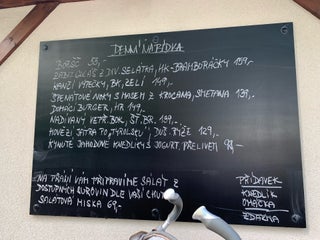 DENNÍ NABÍDKA
BORŠČ 55,-
ZABIJ. GULÁŠ Z DIV. SELÁTKA, HK-BRAMBORÁČKY 159,-
KANČÍ VÝPEČKY, BK, ZELÍ 149,-
ŠPENÁTOVÉ NOKY S MASEM Z KROCANA, SMETANA 139,-
DOMÁCÍ BURGER, HR 149,-
NADÍVANÝ VEPŘ. BOK, ŠT. BR. 139,-
HOVĚZÍ JÁTRA PO "TYROLSKU", DUŠ. RÝŽE 129,-
KYNUTÉ JAHODOVÉ KNEDLÍKY S JOGURT. PŘELIVEM 98,-
NA PŘÁNÍ VÁM PŘIPRAVÍME SALÁT Z
DOSTUPNÝCH SUROVIN DLE VAŠÍ CHUTI
SALÁTOVÁ MISKA 69,-
PŘÍDAVEK
KNEDLÍK
OMÁČKA
ZDARMA